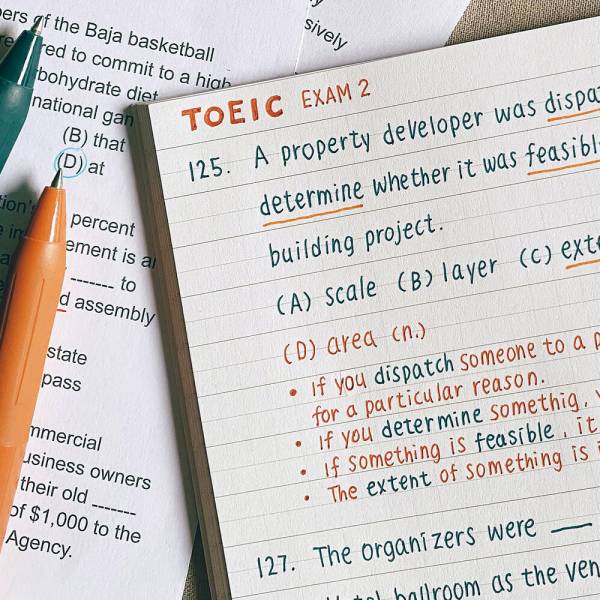 of the Baja basketball
red to commit to a high
bohydrate diet
national gan
(B) that
(D) at
percent
ement is a
------- to
d assembly
state
pass
mmercial
usiness owners
their old -------
of $1,000 to the
Agency.
sively
TOEIC EXAM 2
125. A property developer was dispa
determine whether it was feasibl
building project.
(A) scale (B) layer (C) exte
(D) area (n.)
• If you dispatch someone to a p
for a particular reason.
• If you determine somethig,
• If something is feasible, it
• The extent of something is i
127. The organizers were
ballroom as the ven